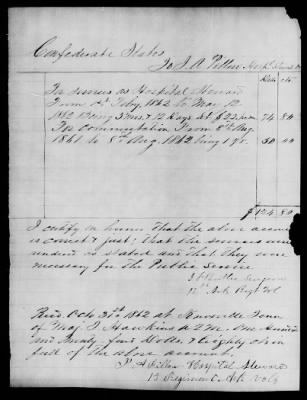 Confederate States
To J. A. Pillow Hospl. Steward Dr
Dolls cts
For services as Hospital Steward
From 1st Feby 1862 to May 12
1862 being 3 mos & 12 days at $22 per m 74 80
For commutation From 8th Aug
1861 to 8th Aug. 1862 being 1 yr. 50 00
$124.80
I certify on honor that the above account
is correct & just; that the services were
rendered as stated and that they were
necessary for the Public Service
Surgeon
Ark Regt Vol
Recd Oct 31st 1862 at Knoxville Tenn
of Maj J Hawkins A Q M. One Hundred
and Twenty four Dollars & Eighty cts in
full of the above account.
J. A Pillow Hospital Steward
13 Regiment Ark Vols